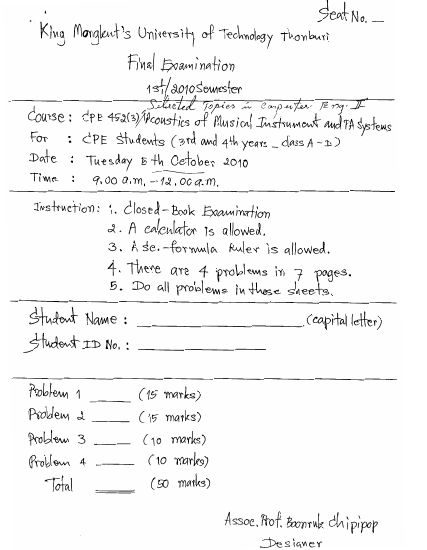 Seat No. _
King Mongkut's University of Technology Thonburi
Final Examination
1st/2010 Semester
Selected Topics in Computer Eng. II
Course : CPE 452(3)/Acoustics of Musical Instrument and PA Systems
For : CPE Students (3rd and 4th years _ class A-D)
Date : Tuesday 5th October 2010
Time : 9.00 a.m. - 12.00 a.m.
Instruction: 1. Closed-Book Examination
2. A calculator is allowed.
3. A Sc.-formula Ruler is allowed.
4. There are 4 problems in 7 pages.
5. Do all problems in these sheets.
Student Name : ____________ (capital letter)
Student ID No. : ____________
Problem 1 ____ (15 marks)
Problem 2 ____ (15 marks)
Problem 3 ____ (10 marks)
Problem 4 ____ (10 marks)
Total ____ (50 marks)
Assoc. Prof. Boonruk Chipipop
Designer